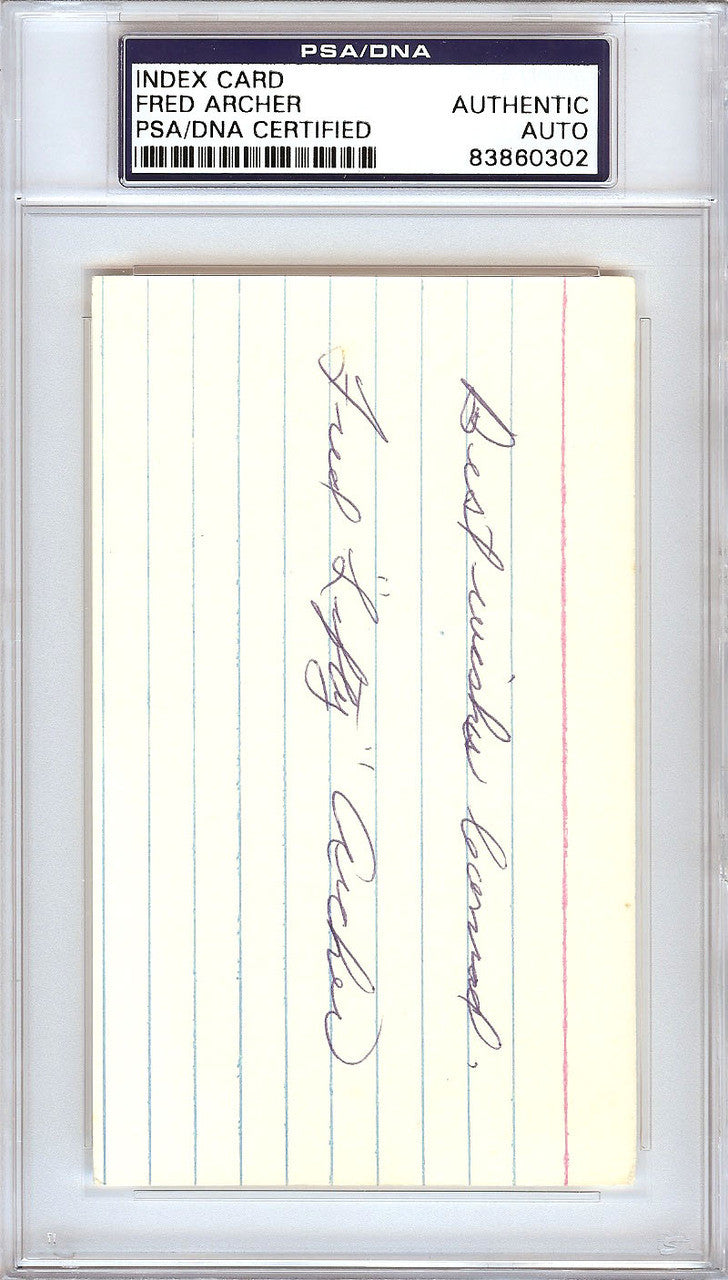 PSA/DNA
INDEX CARD
FRED ARCHER
PSA/DNA CERTIFIED
AUTHENTIC
AUTO
83860302
Best wishes Conrad,
Fred "Lefty" Archer